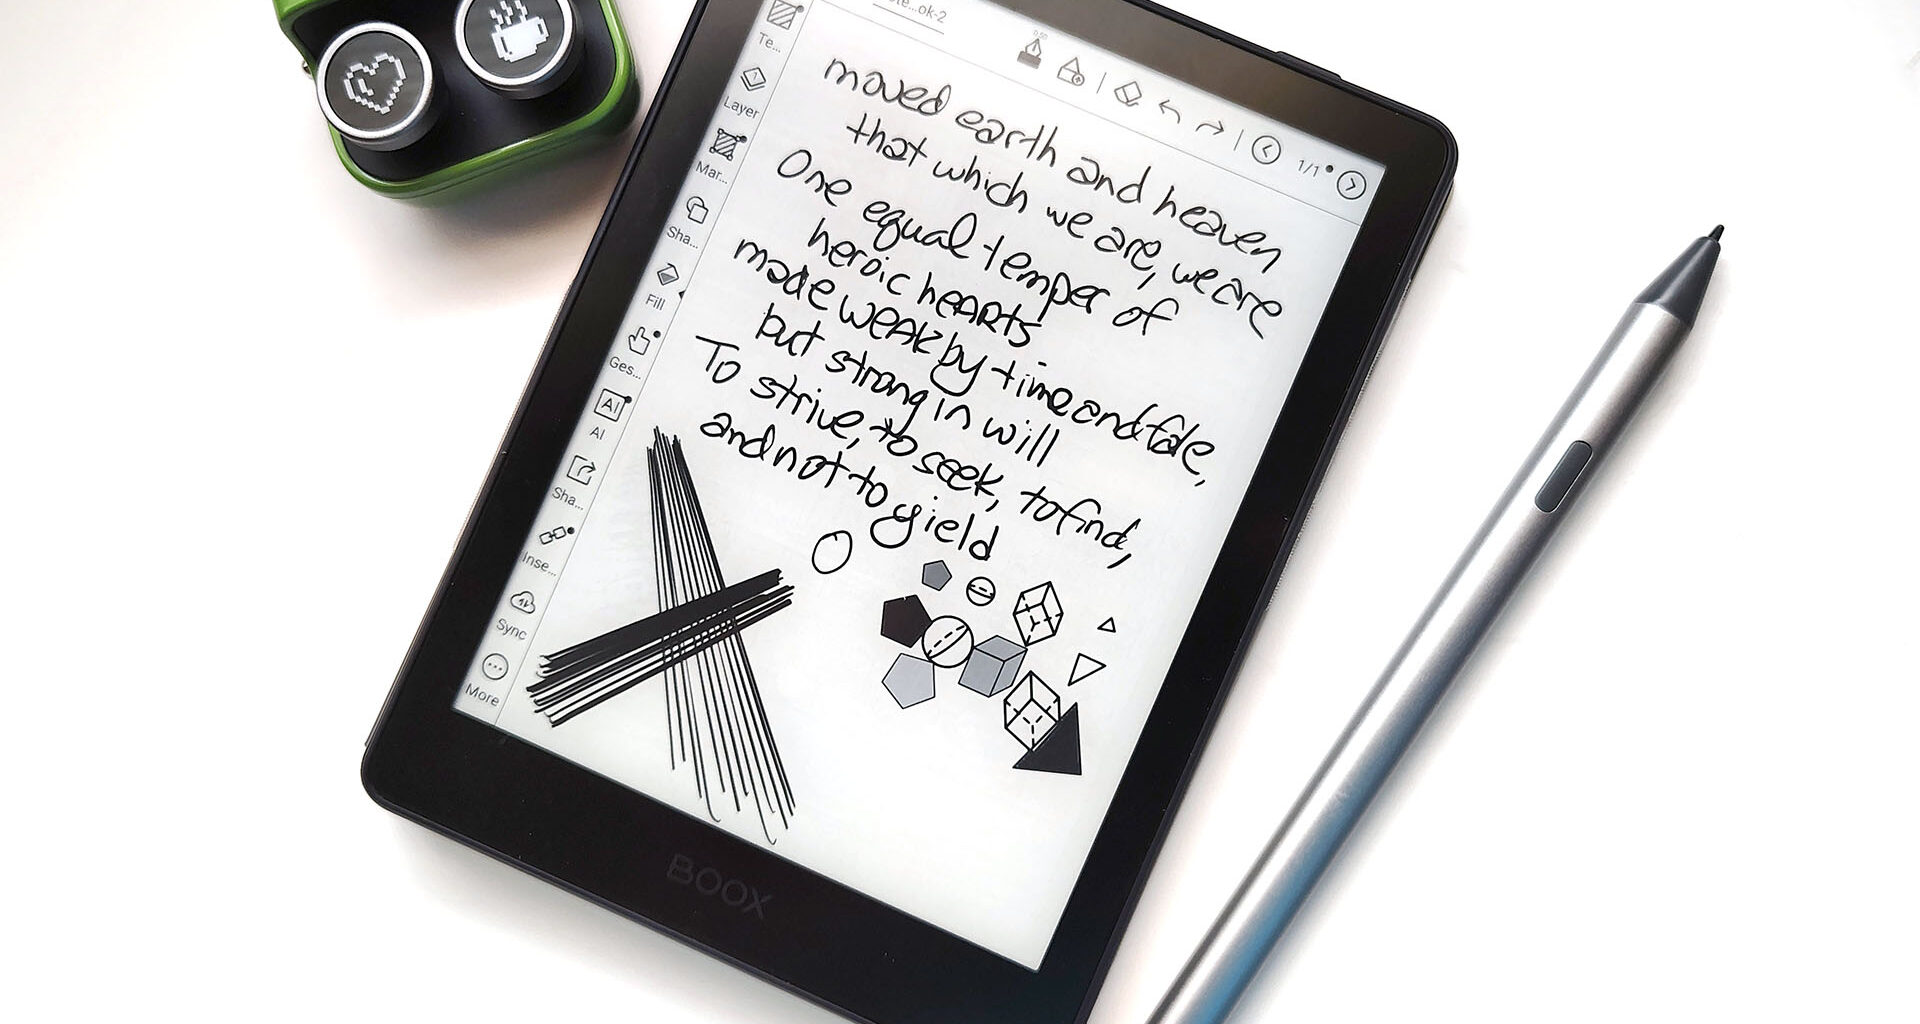 ote...ok-2
1/1
Te...
Layer
Mar...
Sha...
Fill
Ges...
AI
AI
Sha...
Inse...
Sync
More
moved earth and heaven
that which we are, we are
One equal temper of
heroic heARTs
made wEAk by time and fate,
but strong in will
To strive, to seek, to find,
and not to yield
BOOX